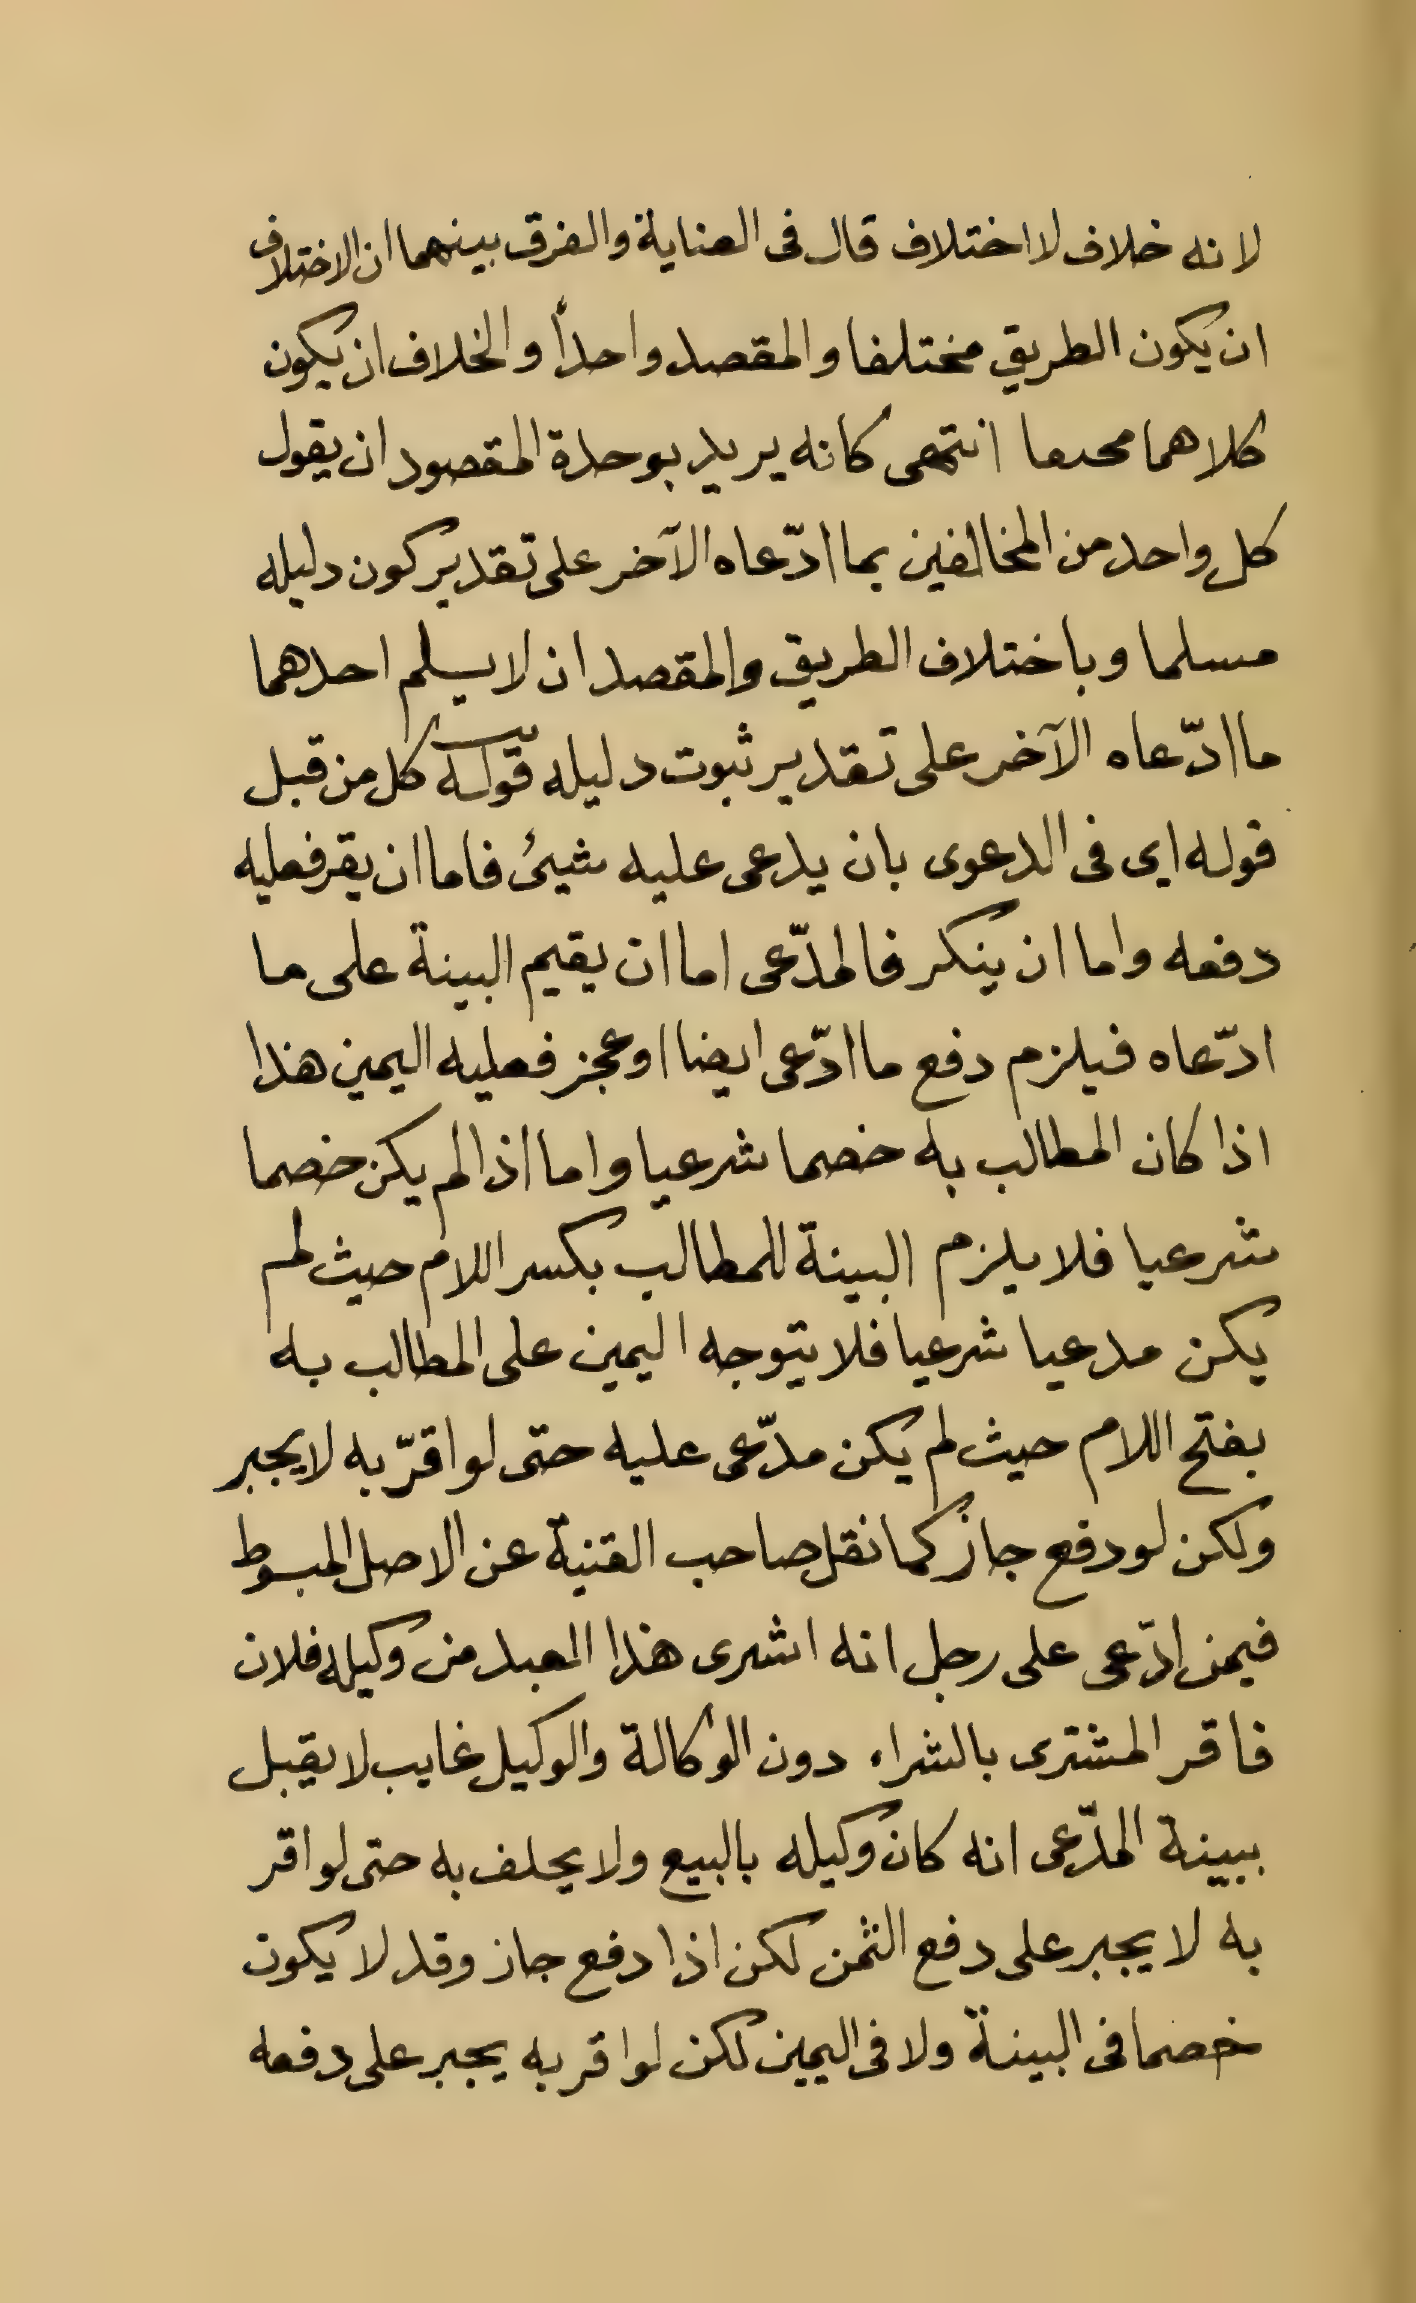 لانه خلاف لا اختلاف قال فى العناية والفرق بينهما ان الاختلاف
ان يكون الطريق مختلفا والمقصد واحداً والخلاف ان يكون
كلاهما انتهى كانه يريد بوحدة المقصود ان يقول
كل واحد من المخالفين بما ادّعاه الآخر على تقدير كون دليله
مسلما وباختلاف الطريق والمقصد ان لا يسلم احدهما
ما ادّعاه الآخر على تقدير ثبوت دليله قوله كل من قبل
قوله اى فى الدعوى بان يدعى عليه شيئ فاما ان يقر فعليه
دفعه واما ان ينكر فالمدّعى اما ان يقيم البينة على ما
ادّعاه فيلزم دفع ما ادّعى ايضا او عجز فعليه اليمين هذا
اذا كان المطالب به خصما شرعيا واما اذا لم يكن خصما
شرعيا فلا يلزم البينة للمطالب بكسر اللام حيث لم
يكن مدعيا شرعيا فلا يتوجه اليمين على المطالب به
بفتح اللام حيث لم يكن مدّعى عليه حتى لو اقرّ به لا يجبر
ولكن لو دفع جاز كما نقل صاحب القنية عن الاصل المبسوط
فيمن ادّعى على رجل انه اشرى هذا العبد من وكيله فلان
فاقر المشترى بالشراء دون الوكالة والوكيل غايب لا يقبل
ببينة المدّعى انه كان وكيله بالبيع ولا يحلف به حتى لو اقر
به لا يجبر على دفع الثمن لكن اذا دفع جاز وقد لا يكون
خصما فى البينة ولا فى اليمين لكن لو اقر به يجبر على دفعه